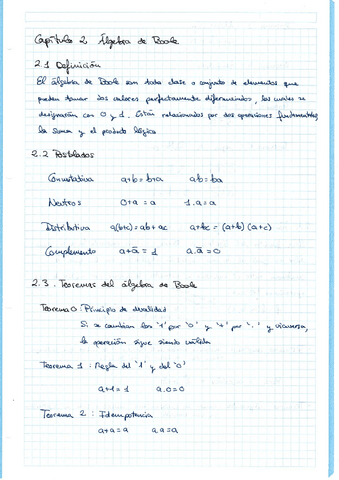 Capítulo 2 Álgebra de Boole
2.1 Definición
El álgebra de Boole son toda clase o conjunto de elementos que
pueden tomar dos valores perfectamente diferenciados, los cuales se
designarán con 0 y 1. Están relacionados por dos operaciones fundamentales,
la suma y el producto lógico
2.2 Postulados
Conmutativa a+b=b+a ab=ba
Neutros 0+a=a 1.a=a
Distributiva a(b+c)=ab+ac a+bc=(a+b)(a+c)
Complemento a+ā=1 a.ā=0
2.3. Teoremas del álgebra de Boole
Teorema 0: Principio de dualidad
Si se cambian los '1' por '0' y '+' por '.' y viceversa,
la operación sigue siendo válida
Teorema 1: Regla del '1' y del '0'
a+1=1 a.0=0
Teorema 2: Idempotencia
a+a=a a.a=a